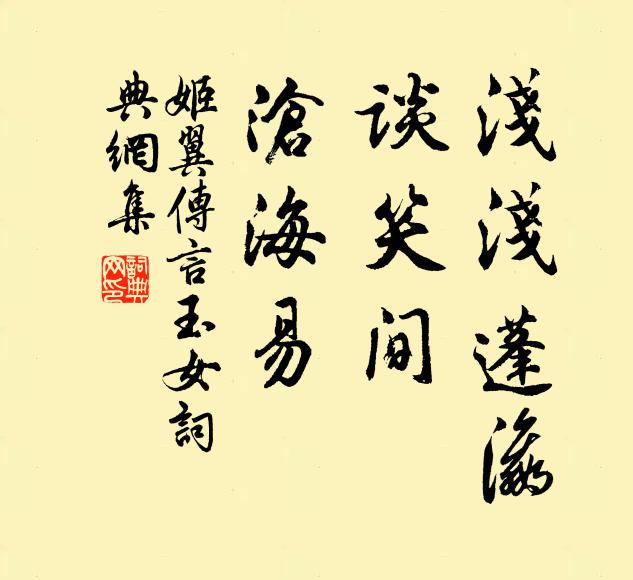 淺淺蓬瀛
談笑間
滄海易
姬翼傳言玉女詞
典網集
詞典網印